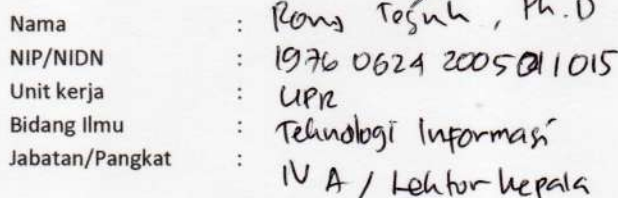 Nama : Rony Teguh, Ph.D
NIP/NIDN : 19760624 2005011015
Unit kerja : UPR
Bidang Ilmu : Teknologi Informasi
Jabatan/Pangkat : IV A / Lektor kepala